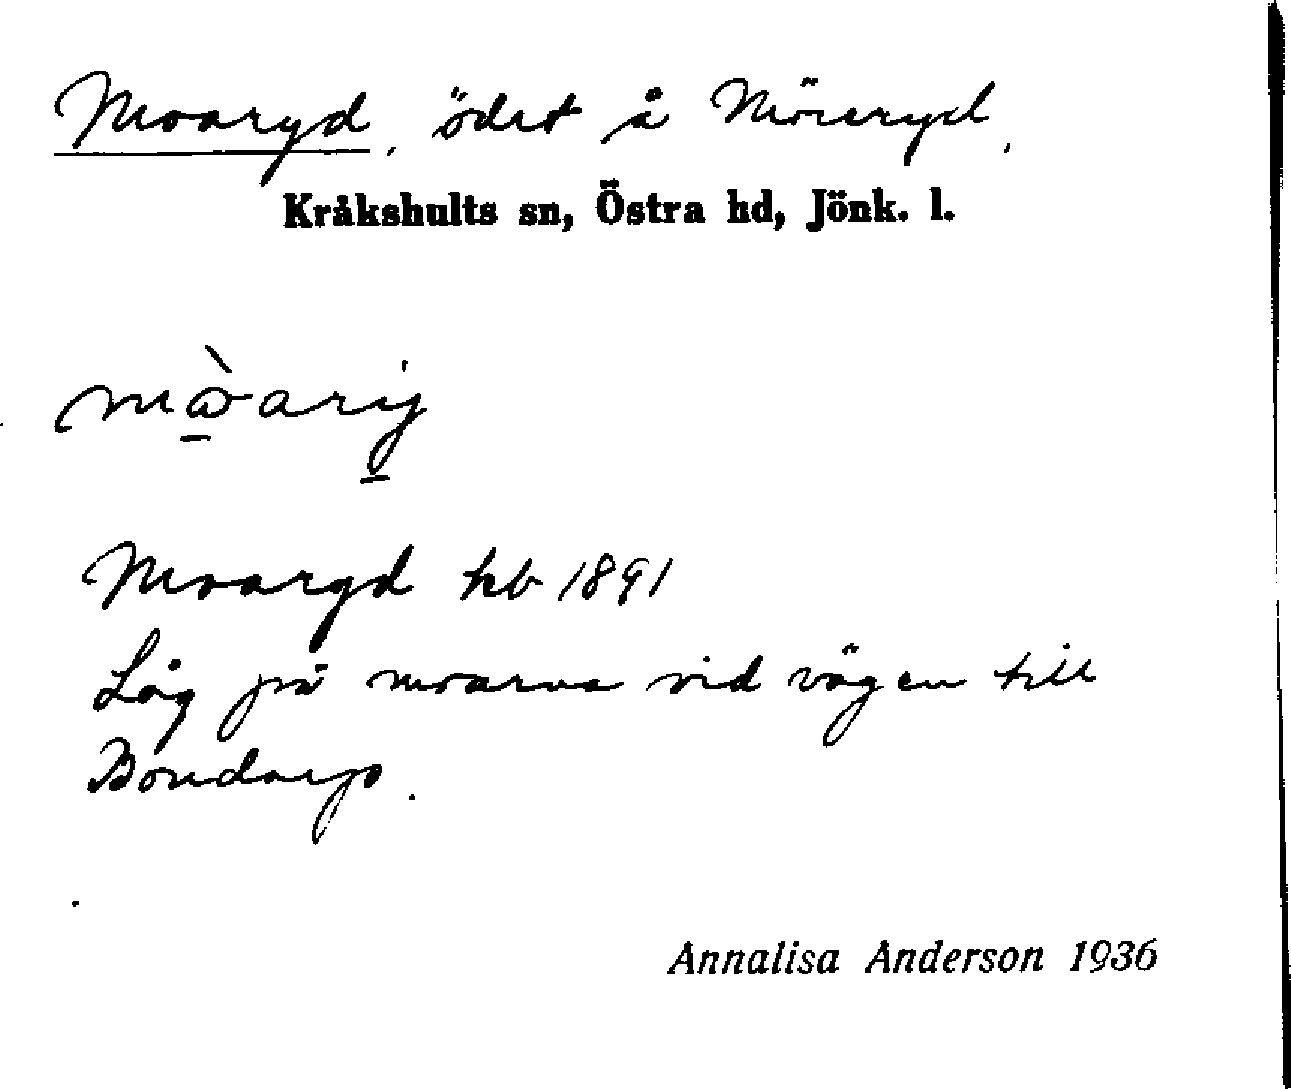 Moaryd, ödet å Möreryd,
Kråkshults sn, Östra hd, Jönk. l.
Moaryd hb 1891
Låg på moarna vid vägen till
Bondarp.
Annalisa Anderson 1936